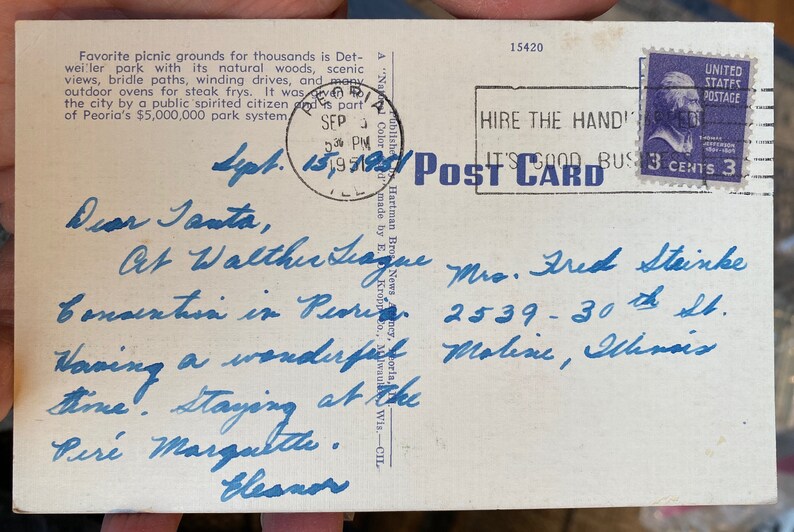 Favorite picnic grounds for thousands is Det-
wei'ler park with its natural woods, scenic
views, bridle paths, winding drives, and many
outdoor ovens for steak frys. It was given to
the city by a public spirited citizen and is part
of Peoria's $5,000,000 park system.
15420
PEORIA
SEP
5 30 PM
1951
ILL
HIRE THE HANDICAPPED
IT'S GOOD BUSINESS
UNITED
STATES
POSTAGE
THOMAS
JEFFERSON
1801-1809
3 CENTS 3
POST CARD
Published by Hartman Bros. News Agency, Peoria, Ill.
A "Natural Color Card" made by E. C. Kropp Co., Milwaukee, Wis.—CIL
Sept. 15, 1951
Dear Tanta,
At Walther League
Convention in Peoria.
Having a wonderful
time. Staying at the
Peré Marquette.
Eleanor
Mrs. Fred Steinke
2539 - 30th St.
Moline, Illinois